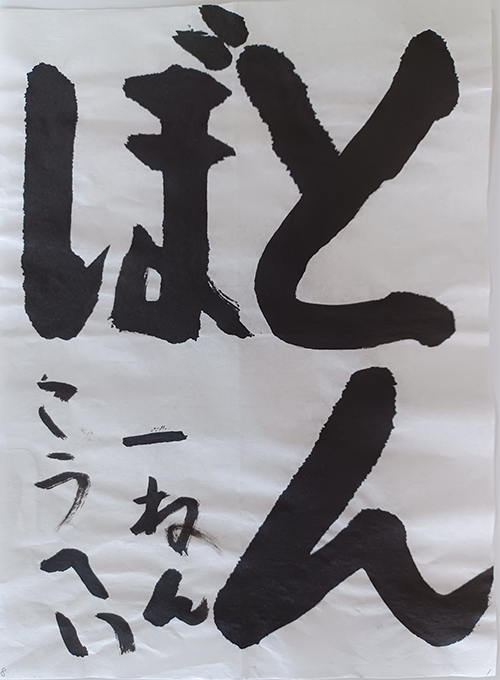 とん
ぼ
一ねん
こうへい